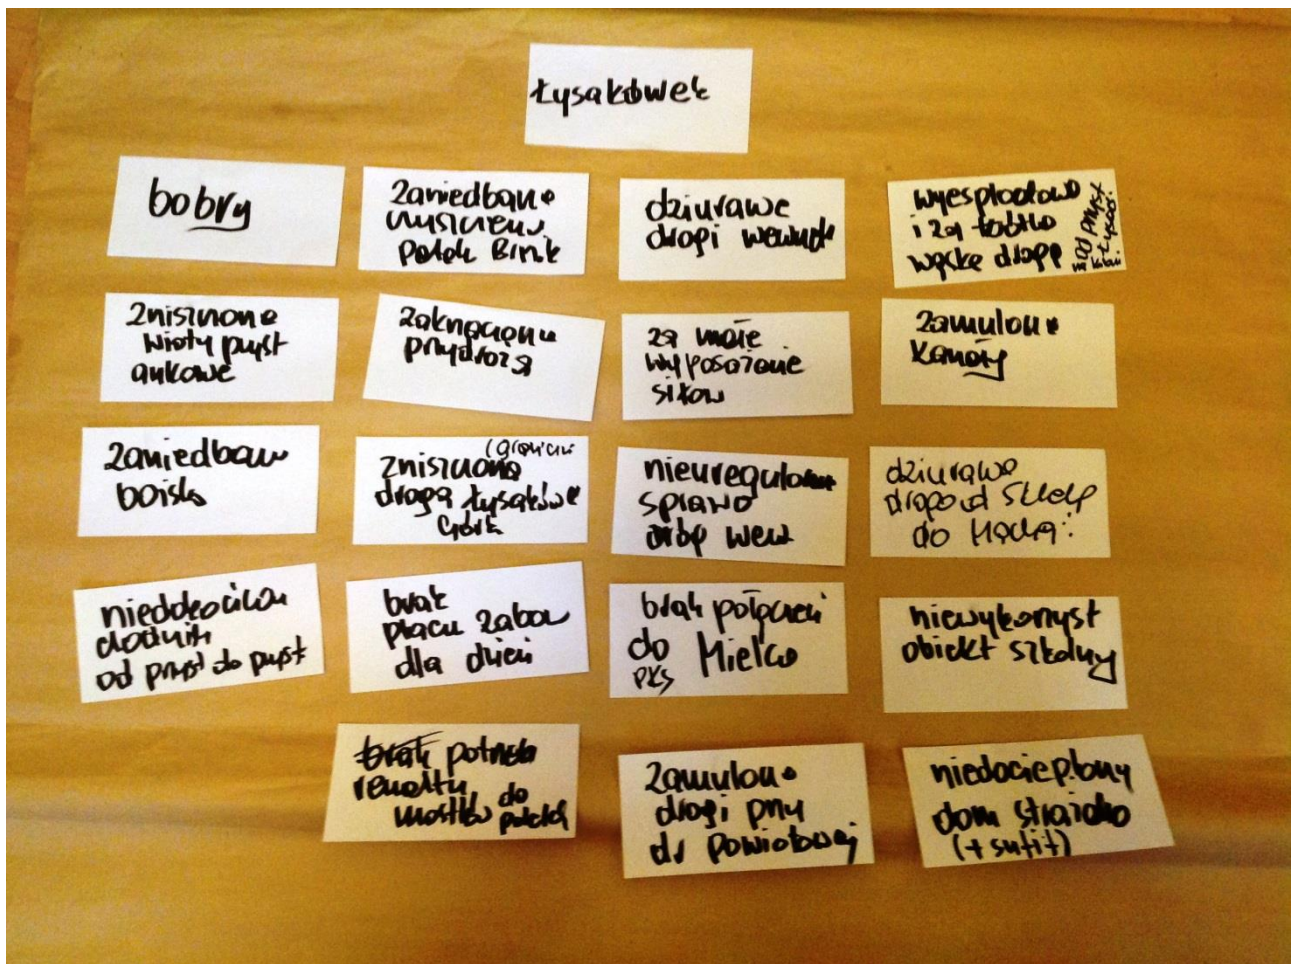 Łysakówek
bobry
zaniedbane
potok
dziurawe
drogi wewnęt
i za
wąskę drogę
zniszczone
wiaty przyst
ankowe
przydroża
za małe
wyposażenie
siłow
zamulone
kanały
zaniedban
boisk
zniszczona
droga Łysakówe
Górk
nieuregulowa
sprawa
wew
dziurawe
drogę od sklep
do
chodnik
od przyst do przyst
brak
placu zabaw
dla dzieci
brak połączeń
do Mielca
PKS
niewykorzyst
obiekt szkolny
brak potrzeb
remontu
mostków do
zamulone
drogi przy
dr powiatowej
niedocieplony
dom strażaka
(+ sufit)